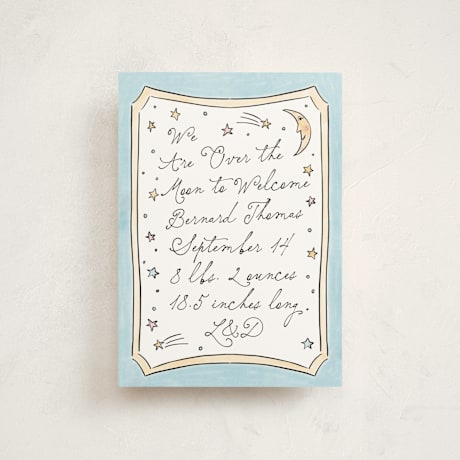 We
Are Over the
Moon to Welcome
Bernard Thomas
September 14
8 lbs. 2 ounces
18.5 inches long.
L&D